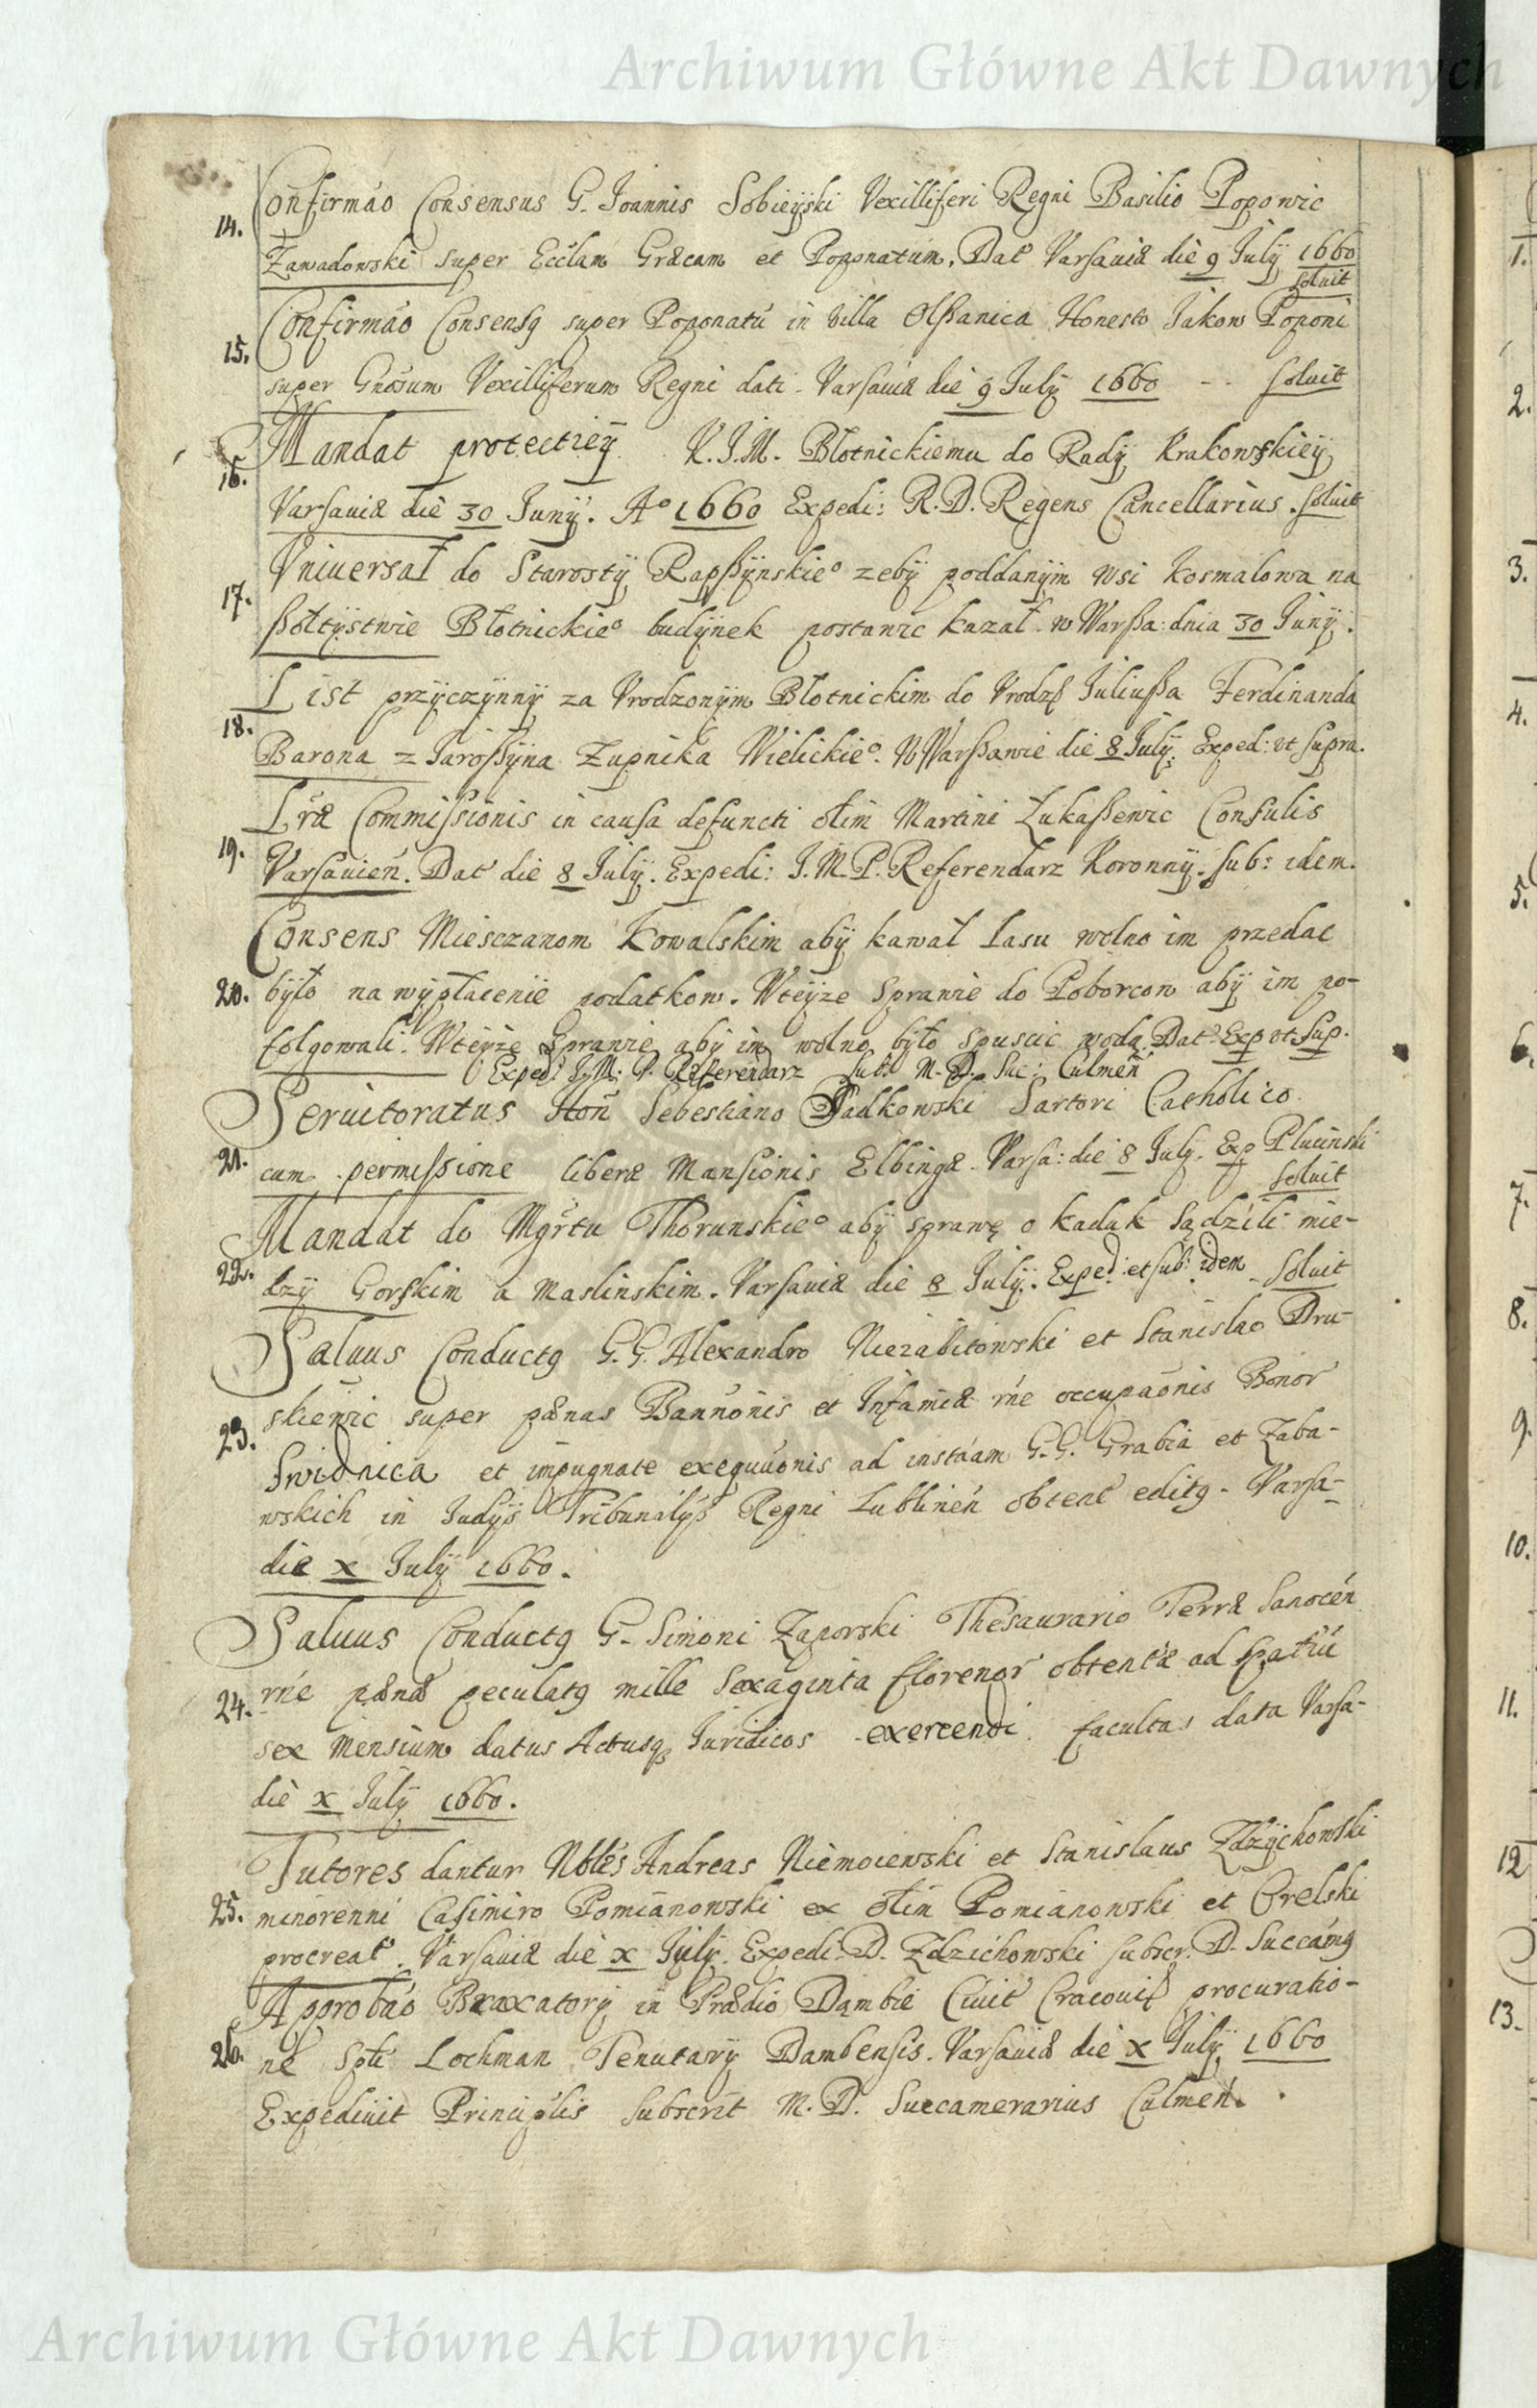 Archiwum Główne Akt Dawnych
14. Confirmáo Consensus G. Joannis Sobieÿski Vexilliferi Regni Basilio Popowic
Zawadowski super Ecclam Græcam et Poponatum. Dat Varsaviæ die 9 Julÿ 1660
soluit
15. Confirmáo Consensꝗ super Poponatú in villa Olßanica Honesto Jakow Poponi
super Gnosum Vexilliferum Regni dati. Varsauiæ die 9 July 1660 -- soluit
16. Mandat protectieÿ K.J.M. Błotnickiemu do Radÿ Krakowskieÿ
Varsauiæ die 30 Junÿ. Aº 1660 Expedi: R.D. Regens Cancellarius. soluit
17. Vniuersał do Starostÿ Rapßÿnskieº zebÿ poddanÿm wsi Kosmalowa na
ßołtÿstwie Błotnickieº budÿnek postawic kazał. w Warßa: dnia 30 Junÿ.
18. List przÿczÿnnÿ za Vrodzonÿm Błotnickim do Vrodzꝭ Juliußa Ferdinanda
Barona z Jaroßÿna Zupnika Wielickieº. W Warßawie die 8 Julÿ. Exped: vt supra.
19. Lræ Commissionis in causa defuncti olim Martini Łukaßewic Consulis
Varsauień. Dat die 8 Julÿ. Expedi: J.M.P. Referendarz Koronnÿ. sub: idem.
20. Consens Miesczanom Kowalskim abÿ kawał Lasu wolno im przedac
bÿło na wÿpłacenie podatkow. Wteÿze sprawie do Poborcow abÿ im po-
folgowali. Wteÿze sprawie abÿ im wolno bÿło spuscic wodą. Dat. Exp vt Sup.
Exped: J. M. P. Referendarz Sub: M. D. Suc: Culmeñ
21. Seruitoratus Hoñ Sebestiano Sadkowski Sartori Catholico
cum permissione liberæ Mansionis Elbingæ. Varsa: die 8 July. Exp Plucinski
soluit
22. Mandat do Mgr̃tu Thorunskieº abÿ sprawę o kaduk sądzili mie-
dzÿ Gorskim a Maslinskim. Varsauiæ die 8 Julÿ. Exped: et sub: idem soluit
23. Saluus Conductꝗ G.G. Alexandro Niezabitowski et Stanislao Dru-
skiewic super pænas Bannónis et Infamiæ rńe occupaónis Bonor
Swidnica et impugnate exequúonis ad instáam G.G. Grabia et Zaba-
wskich in Judÿs Tribunalÿs Regni Lublineń obtent editꝗ. Varsa-
die x Julÿ 1660.
24. Saluus Conductꝗ G. Simoni Zaporski Thesaurario Terræ Sanoceń
rńe pænæ peculatꝗ mille sexaginta florenor obtentæ ad spatiú
sex Mensium datus Actusqꝫ Juridicos exercendi facultas data Varsa-
die x Julÿ 1660.
25. Tutores dantur Nbles Andreas Niemoiewski et Stanislaus Zdzÿchowski
minorenni Casimiro Pomianowski ex olim Pomianowski et Orelski
procreat. Varsauiæ die x July. Expedi. D. Zdzichowski subscr. D. Succámꝗ
26. Approbáo Braxatorÿ in Prædio Dąmbie Ciuit Cracouiꝭ procuratio-
ne Sptł Lochman Tenutarÿ Dambensis. Varsauiæ die x Julÿ 1660
Expediuit Principłis subscrit M. D. Succamerarius Culmeń.
1.
2.
3.
4.
5.
6.
7.
8.
9.
10.
11.
12
13.
Archiwum Główne Akt Dawnych